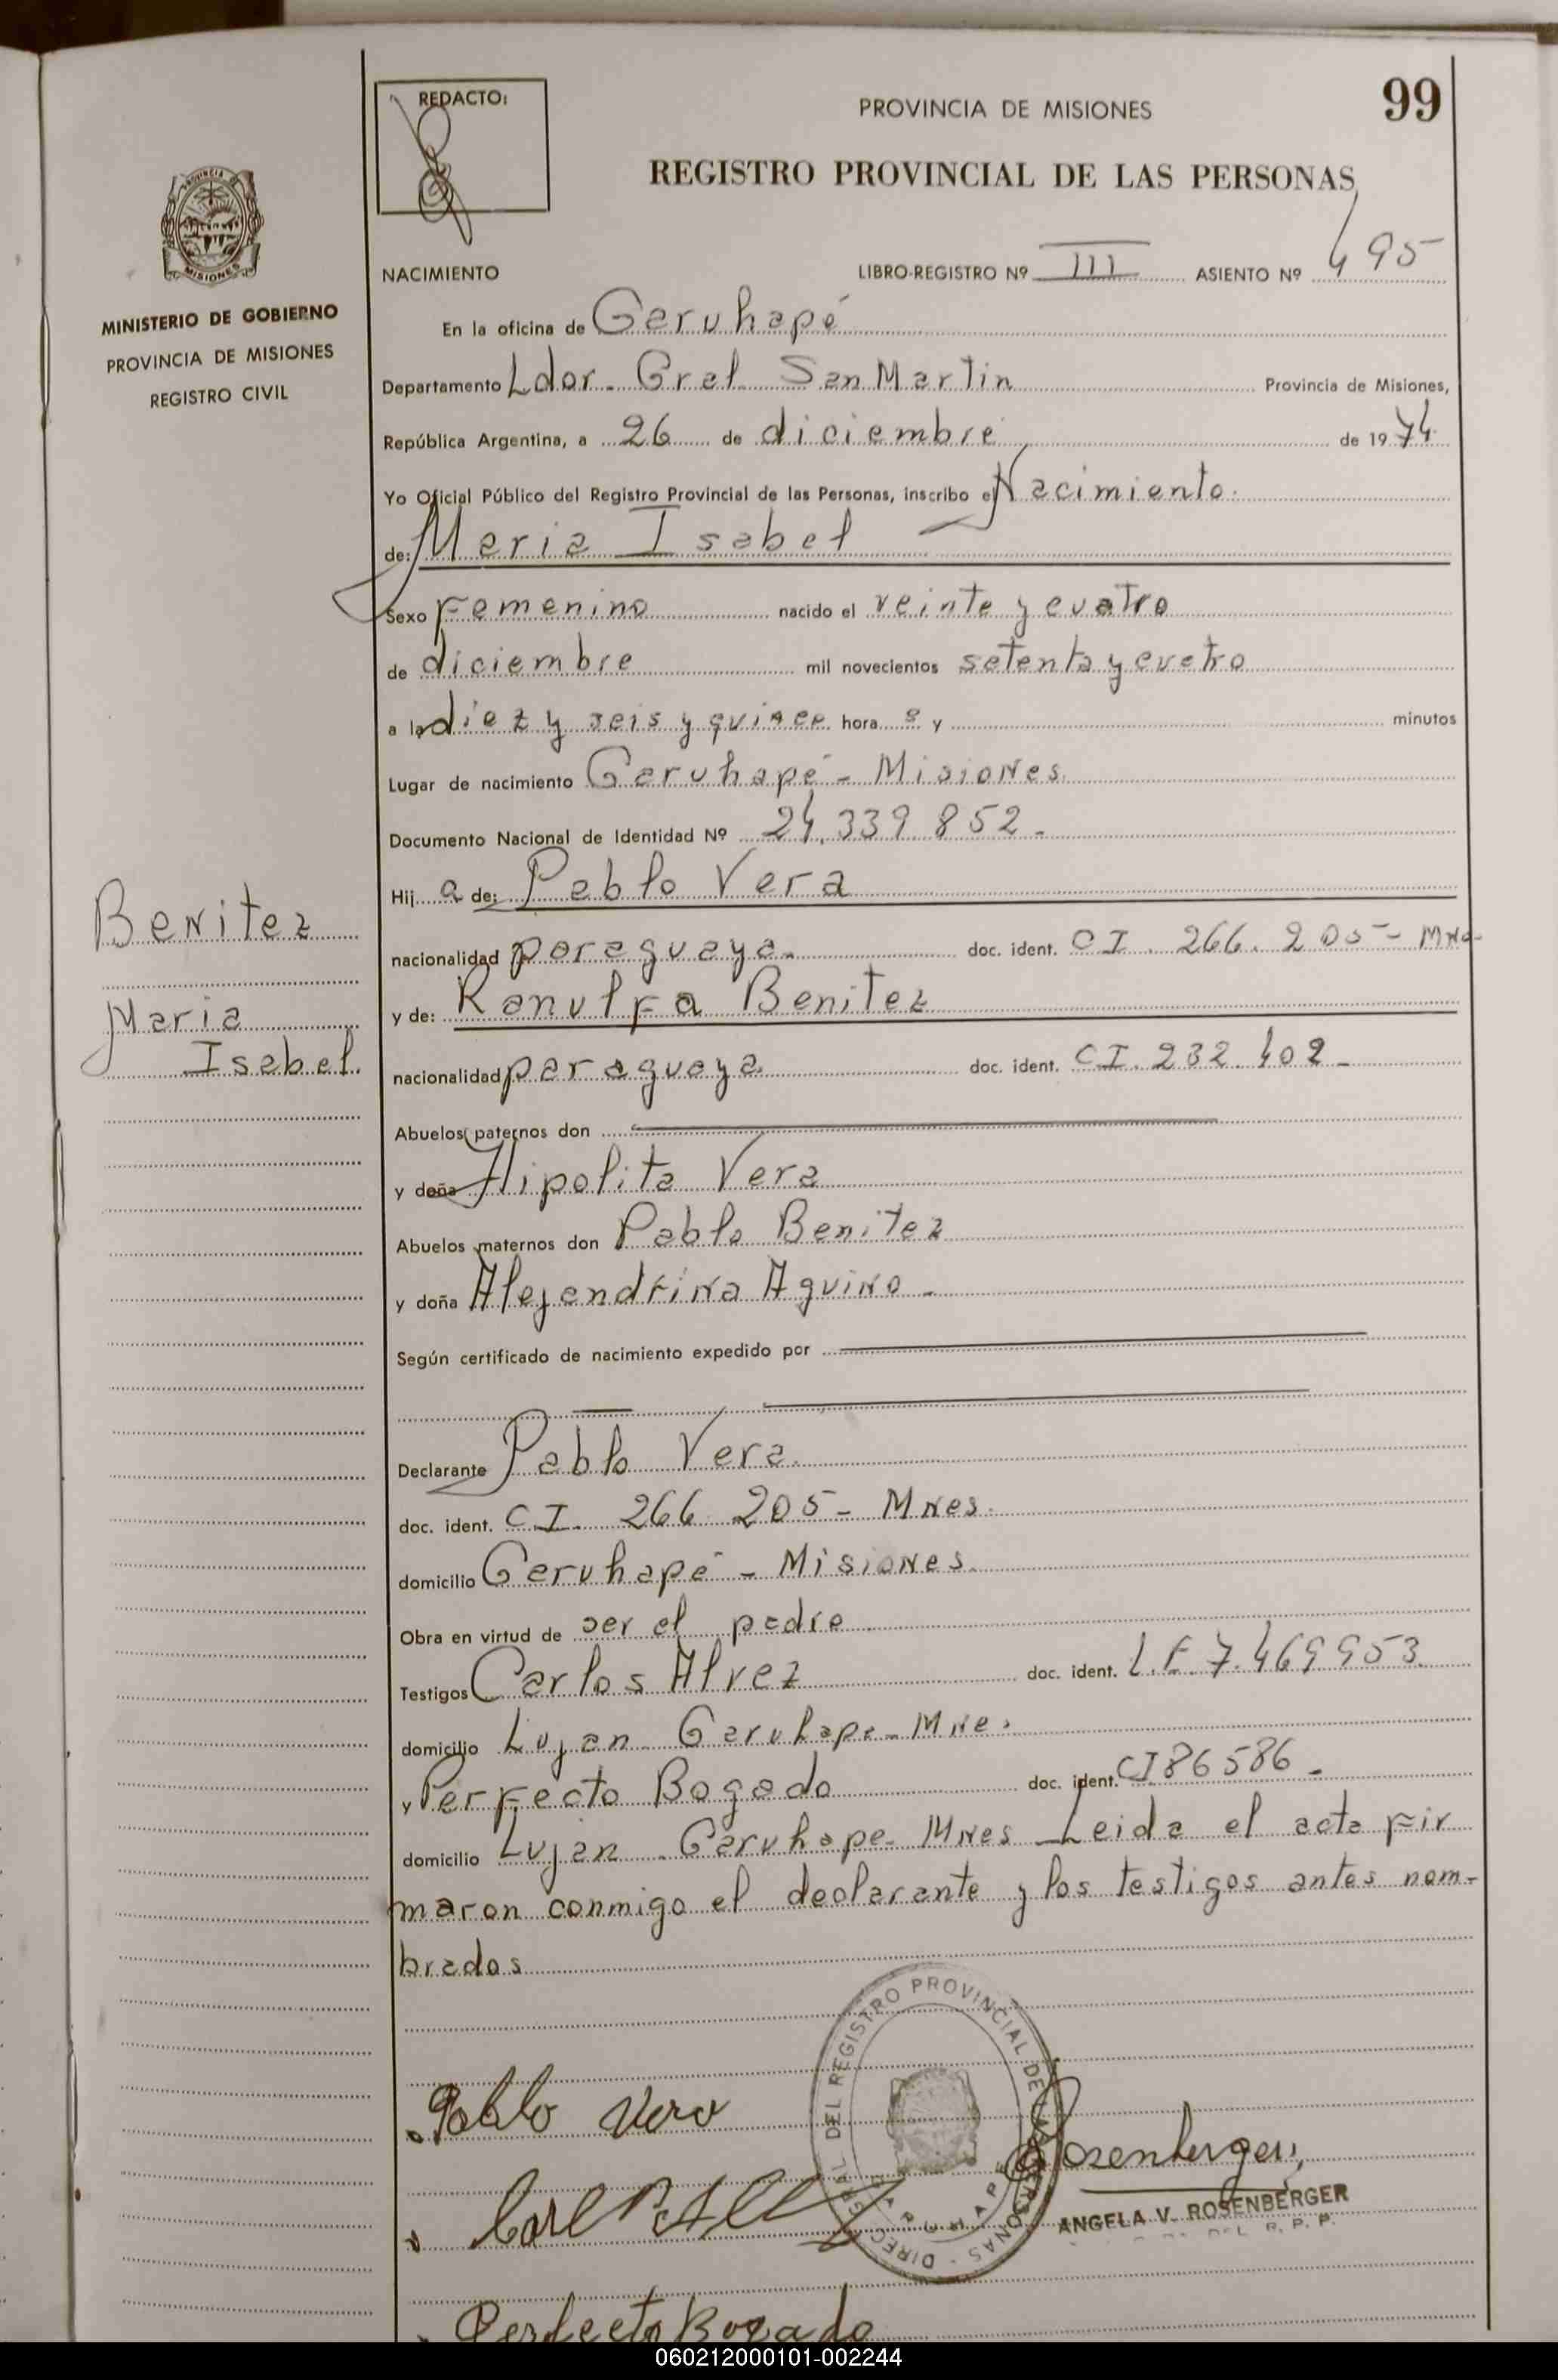 REDACTO:
PROVINCIA DE MISIONES
99
REGISTRO PROVINCIAL DE LAS PERSONAS
NACIMIENTO LIBRO-REGISTRO Nº III ASIENTO Nº 495
MINISTERIO DE GOBIERNO
PROVINCIA DE MISIONES
REGISTRO CIVIL
En la oficina de Garuhapé
Departamento Ldor. Gral. San Martin Provincia de Misiones,
República Argentina, a 26 de diciembre de 1974
Yo Oficial Público del Registro Provincial de las Personas, inscribo el Nacimiento.
de: Maria Isabel
Sexo Femenino nacido el veinte y cuatro
de diciembre mil novecientos setenta y cuatro
a la diez y seis y quince hora s y minutos
Lugar de nacimiento Garuhapé - Misiones.
Documento Nacional de Identidad Nº 24.339.852.-
Hij a de: Pablo Vera
Benitez
Maria
Isabel.
nacionalidad paraguaya. doc. ident. CI. 266.205 - Mnes-
y de: Ranulfa Benitez
nacionalidad paraguaya. doc. ident. CI. 232.402 -
Abuelos paternos don
y doña Hipolita Vera
Abuelos maternos don Pablo Benitez
y doña Alejandrina Aquino -
Según certificado de nacimiento expedido por
Declarante Pablo Vera.
doc. ident. CI. 266.205 - Mnes.
domicilio Garuhapé - Misiones.
Obra en virtud de ser el padre
Testigos Carlos Alvez doc. ident. L.E. 7.469953.
domicilio Lujan - Garuhape - Mnes.
y Perfecto Bogado doc. ident. CI 86586.-
domicilio Lujan - Garuhape - Mnes - Leida el acta fir
maron conmigo el declarante y los testigos antes nom-
brados
DIREC. GRAL. DEL REGISTRO PROVINCIAL DE LAS PERSONAS
GARUHAPE
Pablo Vera
Rosenberger
ANGELA V. ROSENBERGER
DEL R. P. P.
Perfecto Bogado
060212000101-002244